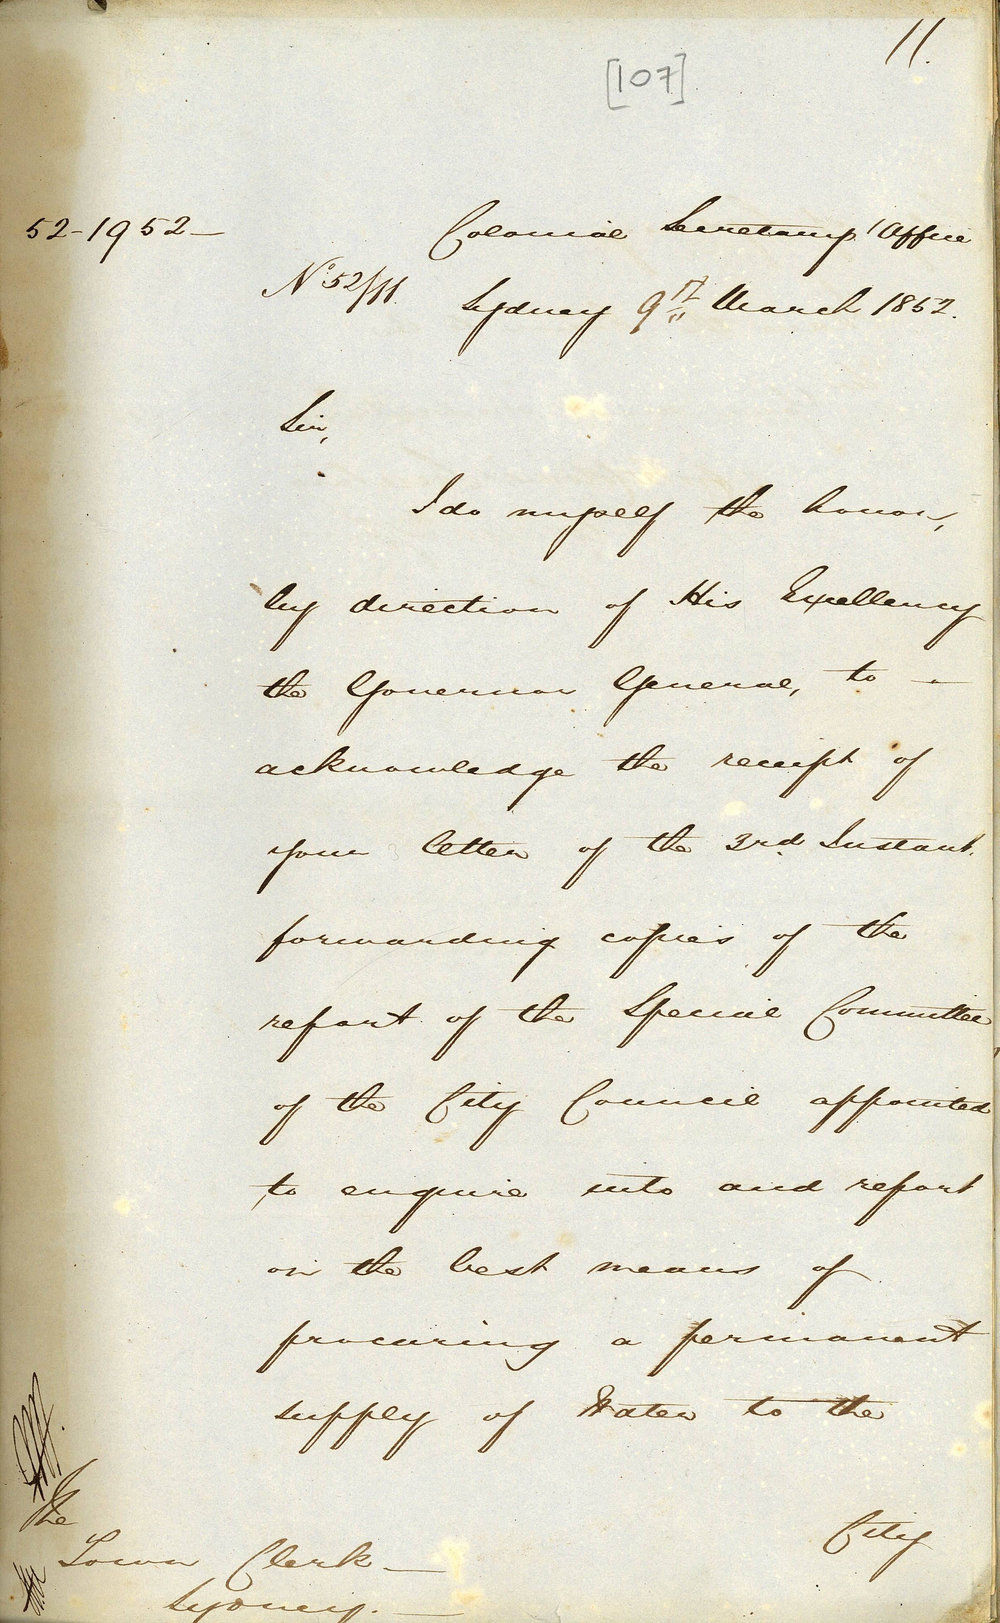 11.
[107]
52-1952-
Colonial Secretary's Office
No. 52/11.
Sydney 9th March 1852.
Sir,
I do myself the honor,
by direction of His Excellency
the Governor General, to -
acknowledge the receipt of
your letter of the 3rd Instant.
forwarding copies of the
report of the Special Committee
of the City Council appointed
to enquire into and report
on the best means of
procuring a permanent
supply of Water to the
City
The
Town Clerk -
Sydney. -